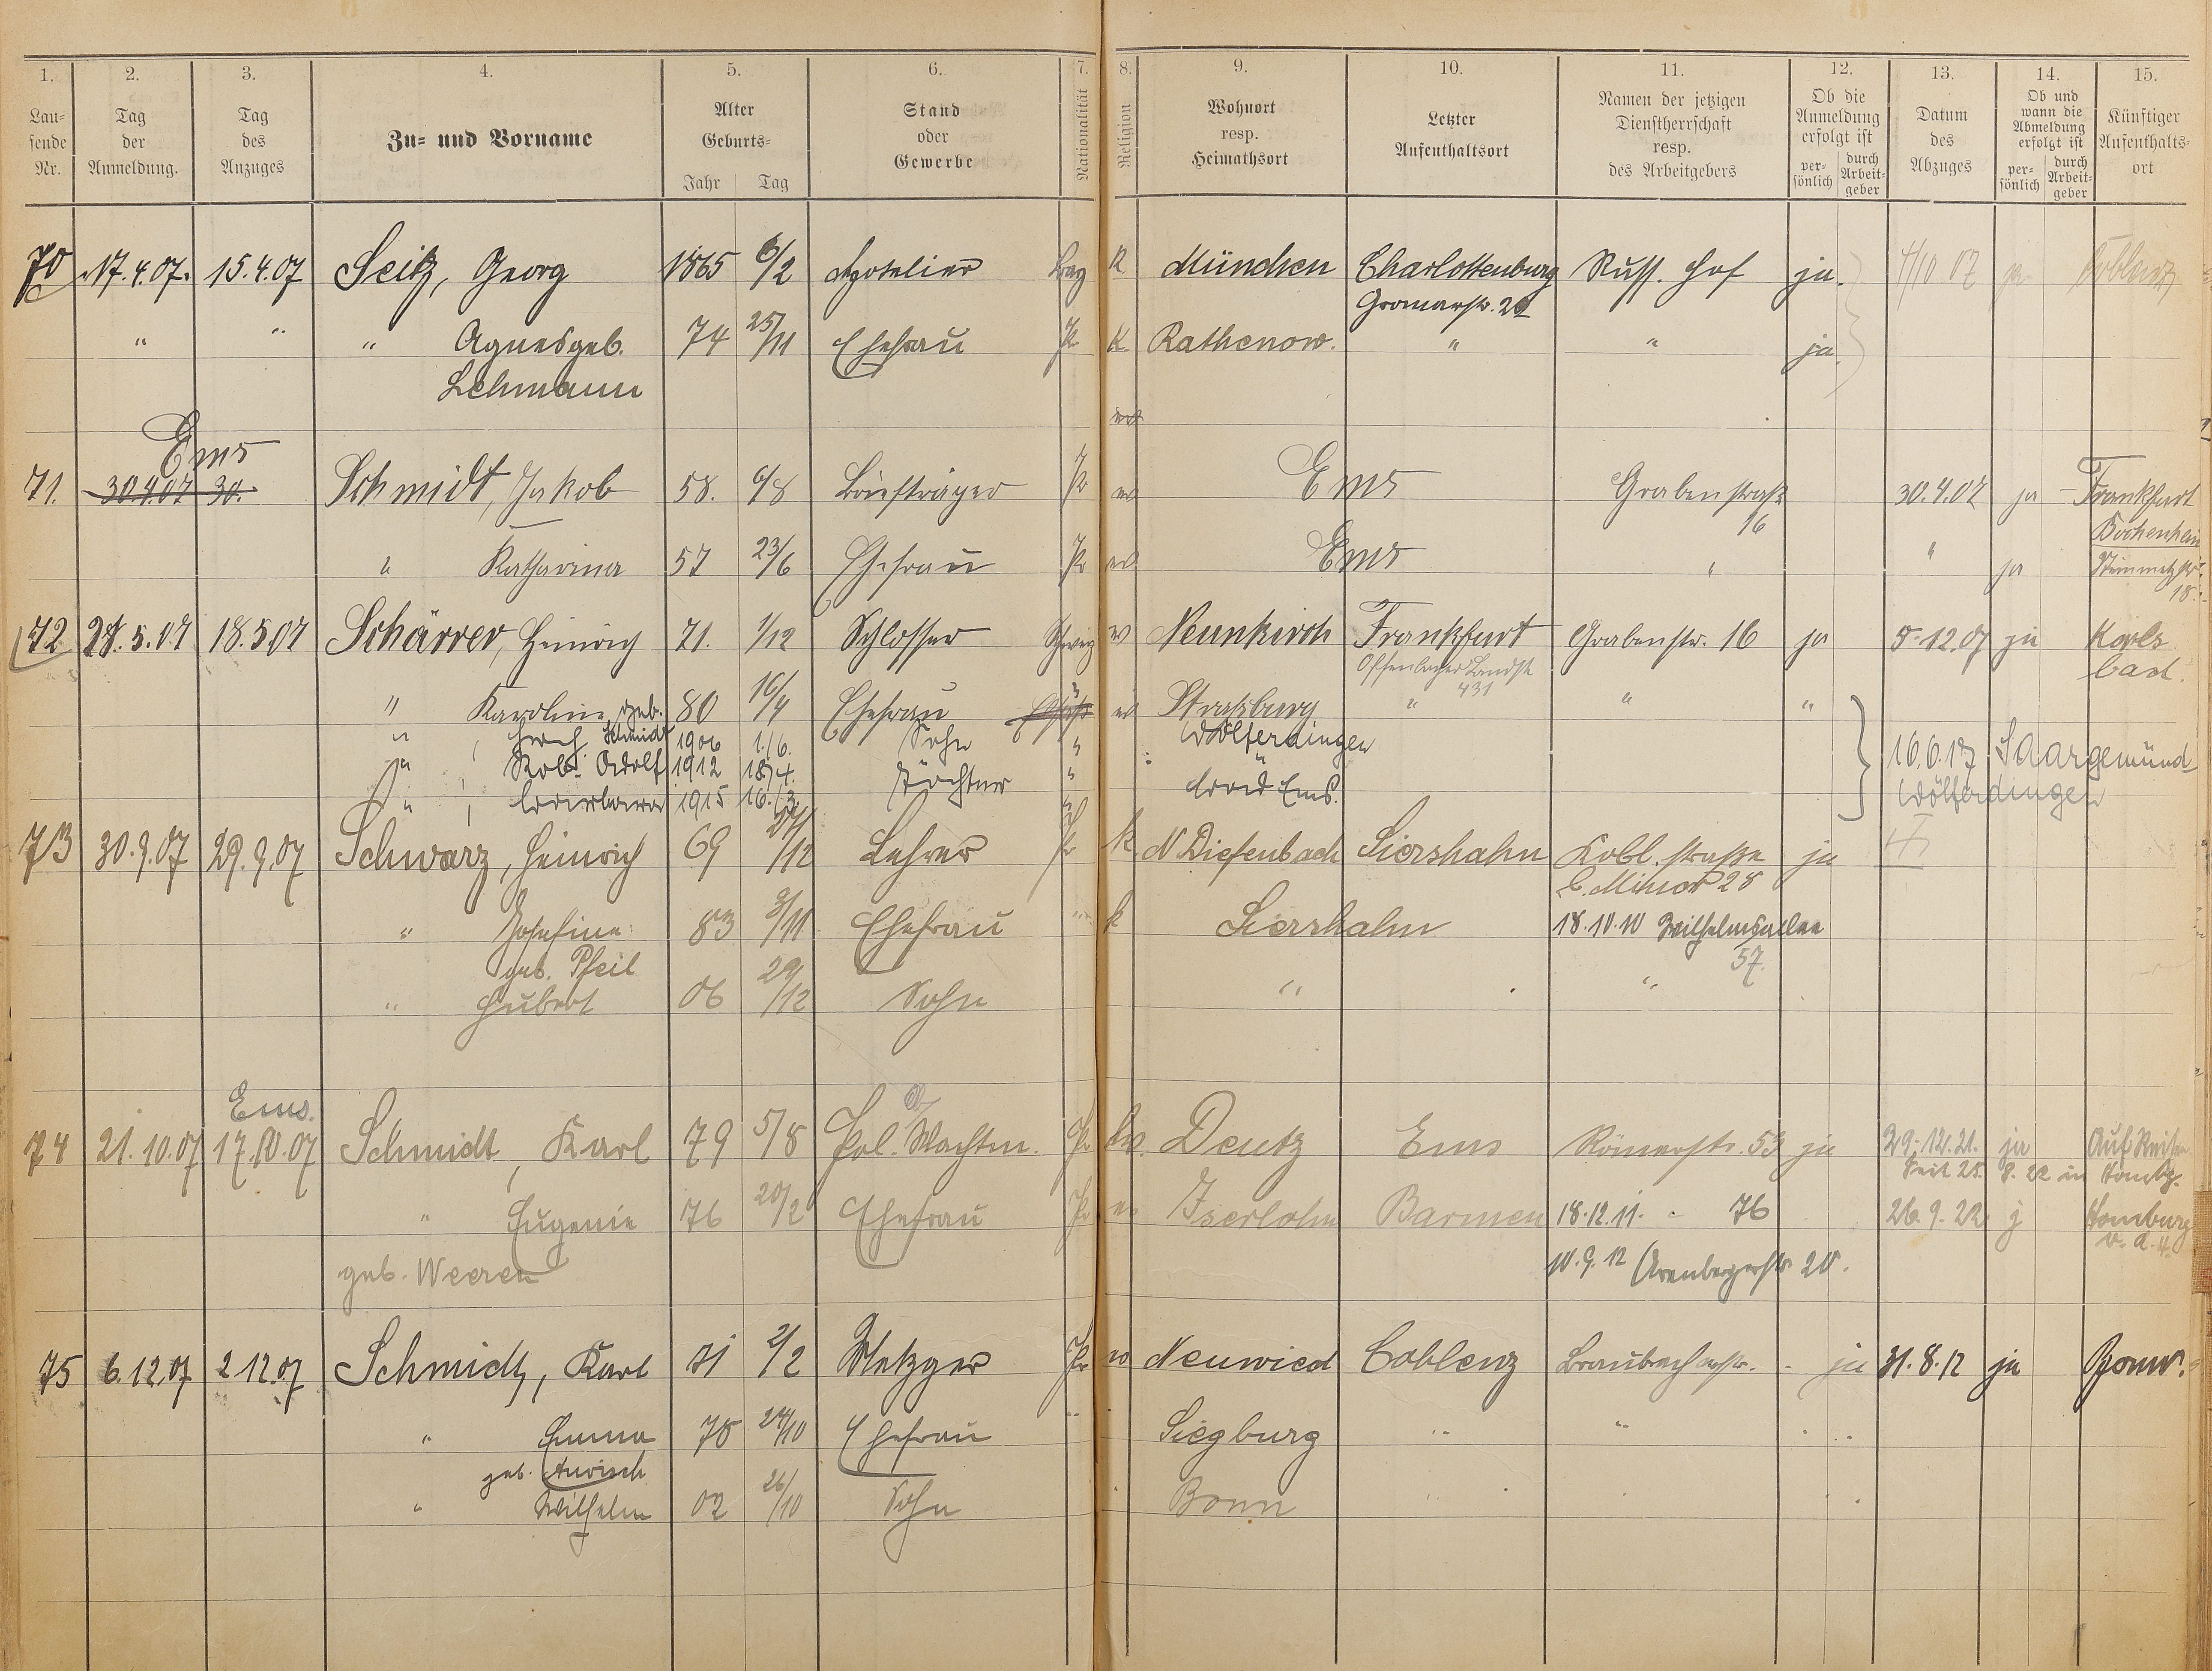 1. 2. 3. 4. 5. 6. 7. 8. 9. 10. 11. 12. 13. 14. 15.
Lau=
fende
Nr.
Tag
der
Anmeldung.
Tag
des
Anzuges
Zu= und Vorname
Alter
Geburts=
Jahr Tag
Stand
oder
Gewerbe
Nationalität
Religion
Wohnort
resp.
Heimathsort
Letzter
Aufenthaltsort
Namen der jetzigen
Dienstherrschaft
resp.
des Arbeitgebers
Ob die
Anmeldung
erfolgt ist
per=
sönlich
durch
Arbeit=
geber
Datum
des
Abzuges
Ob und
wann die
Abmeldung
erfolgt ist
per=
sönlich
durch
Arbeit=
geber
Künftiger
Aufenthalts=
ort
70 17.4.07. 15.4.07 Seitz, Georg 1865 6/2 Hotelier Bay K München Charlottenburg Russ. Hof ja. 4/10 07 ja Coblenz
" " " Agnes geb. 74 25/11 Ehefrau Pr K Rathenow. " " ja.
Lehmann
Ems
71. 30.4.07 30. Schmidt, Jakob 58. 6/8 Briefträger Pr ev Ems Grabenstraße 30.4.07 ja Frankfurt
16 Bockenheim
" Katharina 57 23/6 Ehefrau Pr ev Ems " " ja Steinmetzstr.
18.
72 27.5.07 18.5.07 Schärrer, Heinrich 71. 1/12 Schlosser Schweiz ev Neunkirch Frankfurt Grabenstr. 16 ja 5.12.07 ja Karls
Offenbacher Landstr bad.
431
" Karoline geb. 80 16/4 Ehefrau " ev Strassburg " " "
" Schmidt 1906 1./6. Sohn " Wölferdingen
" Rob. Adolf 1912 18/4. 16.6.17 Saargemünd
" Barbara 1915 16./3. Töchter " Bad Ems. Wölferdingen
73 30.9.07 29.9.07 Schwarz, Heinrich 69 /12 Lehrer Pr k N Diefenbach Siershahn Kobl. straße ja
28
" Josefine 83 3/11 Ehefrau " k Siershahn 18.10.10 Wilhelmsallee
geb. Pfeil 57.
" Hubert 06 29/12 Sohn " "
Ems.
74 21.10.07 17.10.07 Schmidt, Karl 79 5/8 Pol. Wachtm. Pr ev. Deutz Ems Römerstr. 53 ja 29.12.21. ja Auf Reisen
Seit 25. 8. 22 in Hombg.
" Eugenie 76 20/2 Ehefrau Pr ev Iserlohn Barmen 18.12.11. " 76 26.9.22 j Homburg
v. d. H.
geb. Weeren 10.9.12 Arenbergerstr. 20.
75 6.12.07 2.12.07 Schmidt, Karl 71 2/2 Metzger Pr ev Neuwied Coblenz Braubacherstr. - ja 31.8.12 ja Bonn.
" Emma 78 24/10 Ehefrau " Siegburg " " "
geb.
" Wilhelm 02 26/10 Sohn Bonn